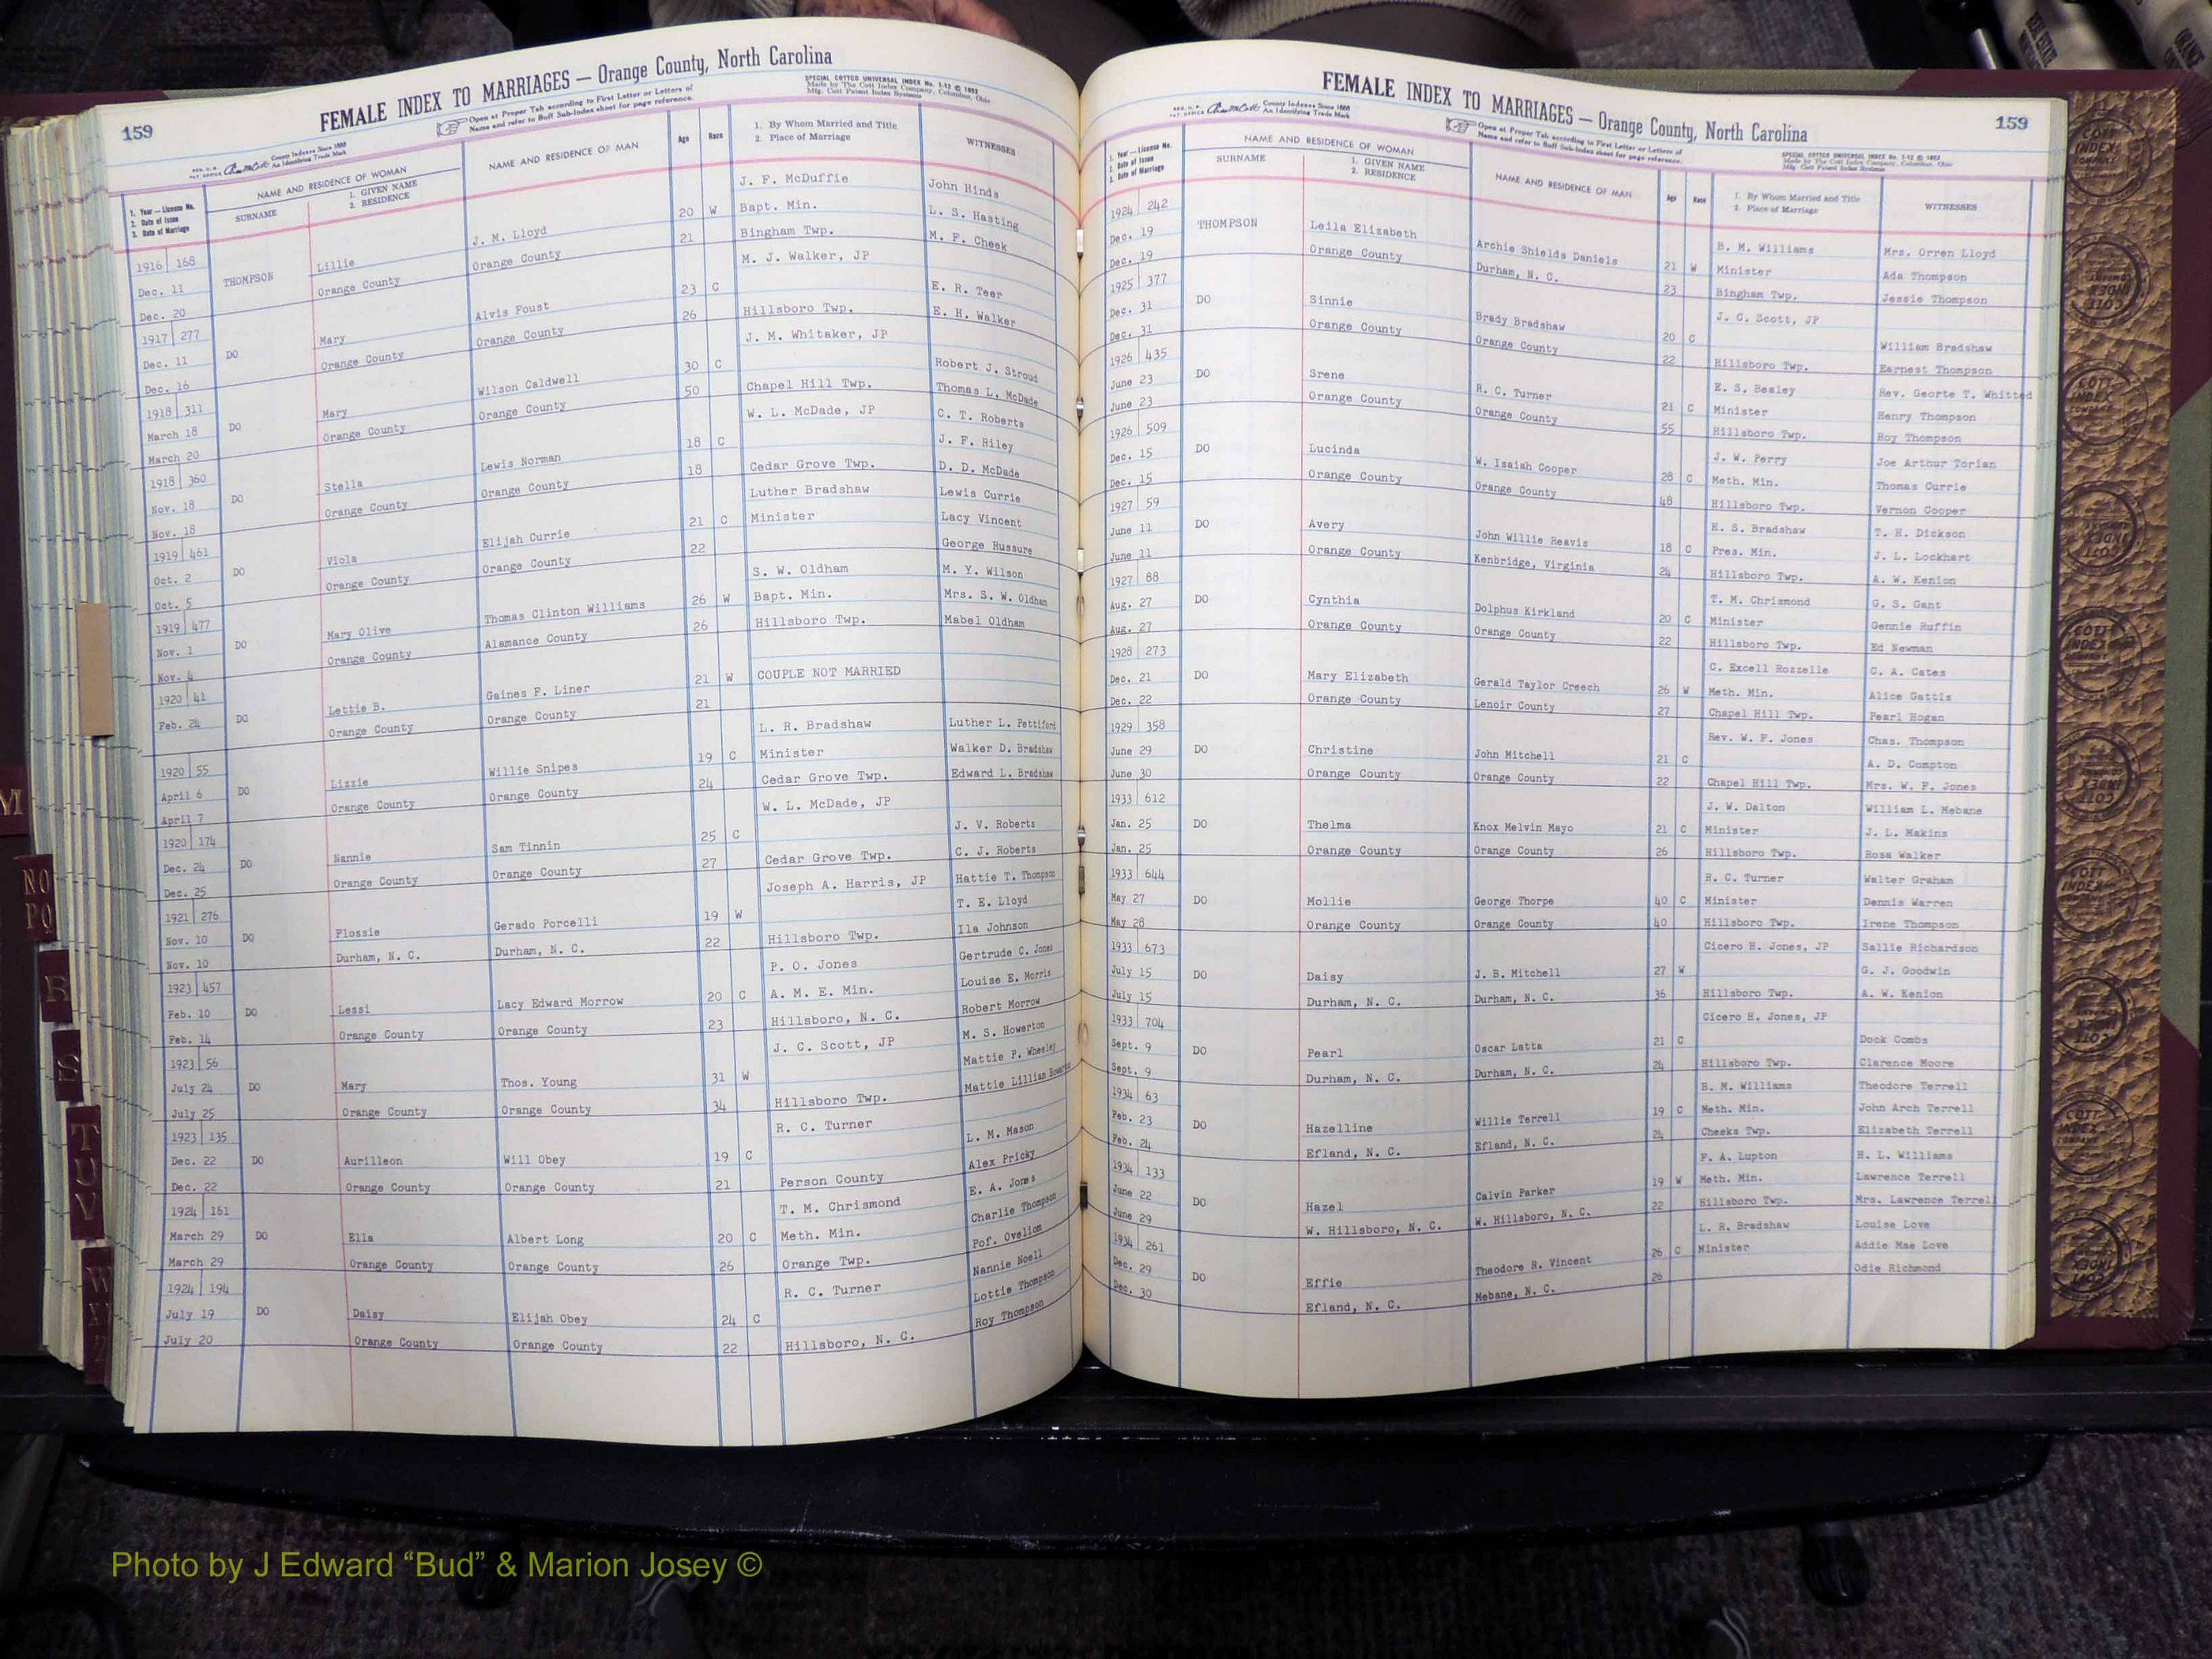 159
FEMALE INDEX TO MARRIAGES — Orange County, North Carolina
Open at Proper Tab according to First Letter or Letters of
Name and refer to Buff Sub-Index sheet for page reference.
SPECIAL COTTCO UNIVERSAL INDEX No. 1-12 © 1952
Made by The Cott Index Company, Columbus, Ohio
Mfg. Cott Patent Index Systems
County Indexes Since 1888
An Identifying Trade Mark
1. Year — License No.
2. Date of Issue
3. Date of Marriage
NAME AND RESIDENCE OF WOMAN
SURNAME
1. GIVEN NAME
2. RESIDENCE
NAME AND RESIDENCE OF MAN
Age
Race
1. By Whom Married and Title
2. Place of Marriage
WITNESSES
1916 168 THOMPSON Lillie J. M. Lloyd 20 W J. F. McDuffie John Hinds
Dec. 11 Orange County Orange County 21 Bapt. Min. L. S. Hasting
Dec. 20 Bingham Twp. M. F. Cheek
1917 277 DO Mary Alvis Foust 23 C M. J. Walker, JP E. R. Teer
Dec. 11 Orange County Orange County 26 E. H. Walker
Dec. 16 Hillsboro Twp.
1918 311 DO Mary Wilson Caldwell 30 C J. M. Whitaker, JP Robert J. Stroud
March 18 Orange County Orange County 50 Thomas L. McDade
March 20 Chapel Hill Twp. C. T. Roberts
1918 360 DO Stella Lewis Norman 18 C W. L. McDade, JP J. F. Riley
Nov. 18 Orange County Orange County 18 D. D. McDade
Nov. 18 Cedar Grove Twp. Lewis Currie
1919 461 DO Viola Elijah Currie 21 C Luther Bradshaw Lacy Vincent
Oct. 2 Orange County Orange County 22 Minister George Russure
Oct. 5 M. Y. Wilson
1919 477 DO Mary Olive Thomas Clinton Williams 26 W S. W. Oldham Mrs. S. W. Oldham
Nov. 1 Orange County Alamance County 26 Bapt. Min. Mabel Oldham
Nov. 4 Hillsboro Twp.
1920 41 DO Lettie B. Gaines F. Liner 21 W COUPLE NOT MARRIED
Feb. 24 Orange County Orange County 21
1920 55 DO Lizzie Willie Snipes 19 C L. R. Bradshaw Luther L. Pettiford
April 6 Orange County Orange County 24 Minister Walker D. Bradshaw
April 7 Cedar Grove Twp. Edward L. Bradshaw
1920 174 DO Nannie Sam Tinnin 25 C W. L. McDade, JP J. V. Roberts
Dec. 24 Orange County Orange County 27 C. J. Roberts
Dec. 25 Cedar Grove Twp. Hattie T. Thompson
1921 276 DO Flossie Gerado Porcelli 19 W Joseph A. Harris, JP T. E. Lloyd
Nov. 10 Durham, N. C. Durham, N. C. 22 Ila Johnson
Nov. 10 Hillsboro Twp. Gertrude C. Jones
1923 457 DO Lessi Lacy Edward Morrow 20 C P. O. Jones Louise E. Morris
Feb. 10 Orange County Orange County 23 A. M. E. Min. Robert Morrow
Feb. 14 Hillsboro, N. C. M. S. Howerton
1923 56 DO Mary Thos. Young 31 W J. C. Scott, JP Mattie P. Wheeley
July 24 Orange County Orange County 34 Mattie Lillian
July 25 Hillsboro Twp.
1923 135 DO Aurilleon Will Obey 19 C R. C. Turner L. M. Mason
Dec. 22 Orange County Orange County 21 Alex Pricky
Dec. 22 Person County E. A. Jones
1924 161 DO Ella Albert Long 20 C T. M. Chrismond Charlie Thompson
March 29 Orange County Orange County 26 Meth. Min. Pof. Oveliom
March 29 Orange Twp. Nannie Noell
1924 194 DO Daisy Elijah Obey 24 C R. C. Turner Lottie Thompson
July 19 Orange County Orange County 22 Roy Thompson
July 20 Hillsboro, N. C.
159
FEMALE INDEX TO MARRIAGES — Orange County, North Carolina
Open at Proper Tab according to First Letter or Letters of
Name and refer to Buff Sub-Index sheet for page reference.
SPECIAL COTTCO UNIVERSAL INDEX No. 1-12 © 1952
Made by The Cott Index Company, Columbus, Ohio
Mfg. Cott Patent Index Systems
County Indexes Since 1888
An Identifying Trade Mark
1. Year — License No.
2. Date of Issue
3. Date of Marriage
NAME AND RESIDENCE OF WOMAN
SURNAME
1. GIVEN NAME
2. RESIDENCE
NAME AND RESIDENCE OF MAN
Age
Race
1. By Whom Married and Title
2. Place of Marriage
WITNESSES
1924 242 THOMPSON Leila Elizabeth Archie Shields Daniels 21 W B. M. Williams Mrs. Orren Lloyd
Dec. 19 Orange County Durham, N. C. 23 Minister Ada Thompson
Dec. 19 Bingham Twp. Jessie Thompson
1925 377 DO Sinnie Brady Bradshaw 20 C J. C. Scott, JP
Dec. 31 Orange County Orange County 22 William Bradshaw
Dec. 31 Hillsboro Twp. Earnest Thompson
1926 435 DO Srene R. C. Turner 21 C E. S. Bealey Rev. Georte T. Whitted
June 23 Orange County Orange County 55 Minister Henry Thompson
June 23 Hillsboro Twp. Roy Thompson
1926 509 DO Lucinda W. Isaiah Cooper 28 C J. W. Perry Joe Arthur Torian
Dec. 15 Orange County Orange County 48 Meth. Min. Thomas Currie
Dec. 15 Hillsboro Twp. Vernon Cooper
1927 59 DO Avery John Willie Reavis 18 C H. S. Bradshaw T. H. Dickson
June 11 Orange County Kenbridge, Virginia 24 Pres. Min. J. L. Lockhart
June 11 Hillsboro Twp. A. W. Kenion
1927 88 DO Cynthia Dolphus Kirkland 20 C T. M. Chrismond G. S. Gant
Aug. 27 Orange County Orange County 22 Minister Gennie Ruffin
Aug. 27 Hillsboro Twp. Ed Newman
1928 273 DO Mary Elizabeth Gerald Taylor Creech 26 W C. Excell Rozzelle C. A. Cates
Dec. 21 Orange County Lenoir County 27 Meth. Min. Alice Gattis
Dec. 22 Chapel Hill Twp. Pearl Hogan
1929 358 DO Christine John Mitchell 21 C Rev. W. F. Jones Chas. Thompson
June 29 Orange County Orange County 22 A. D. Compton
June 30 Chapel Hill Twp. Mrs. W. F. Jones
1933 612 DO Thelma Knox Melvin Mayo 21 C J. W. Dalton William L. Mebane
Jan. 25 Orange County Orange County 26 Minister J. L. Makins
Jan. 25 Hillsboro Twp. Rosa Walker
1933 644 DO Mollie George Thorpe 40 C R. C. Turner Walter Graham
May 27 Orange County Orange County 40 Minister Dennis Warren
May 28 Hillsboro Twp. Irene Thompson
1933 673 DO Daisy J. B. Mitchell 27 W Cicero H. Jones, JP Sallie Richardson
July 15 Durham, N. C. Durham, N. C. 36 G. J. Goodwin
July 15 Hillsboro Twp. A. W. Kenion
1933 704 DO Pearl Oscar Latta 21 C Cicero H. Jones, JP
Sept. 9 Durham, N. C. Durham, N. C. 24 Dock Combs
Sept. 9 Hillsboro Twp. Clarence Moore
1934 63 DO Hazelline Willie Terrell 19 C B. M. Williams Theodore Terrell
Feb. 23 Efland, N. C. Efland, N. C. 24 Meth. Min. John Arch Terrell
Feb. 24 Cheeks Twp. Elizabeth Terrell
1934 133 DO Hazel Calvin Parker 19 W F. A. Lupton H. L. Williams
June 22 W. Hillsboro, N. C. W. Hillsboro, N. C. 22 Meth. Min. Lawrence Terrell
June 29 Hillsboro Twp. Mrs. Lawrence Terrell
1934 261 DO Effie Theodore R. Vincent 26 C L. R. Bradshaw Louise Love
Dec. 29 Efland, N. C. Mebane, N. C. 26 Minister Addie Mae Love
Dec. 30 Odie Richmond
M
NO
PQ
R
S
T
U
V
W
Photo by J Edward “Bud” & Marion Josey ©